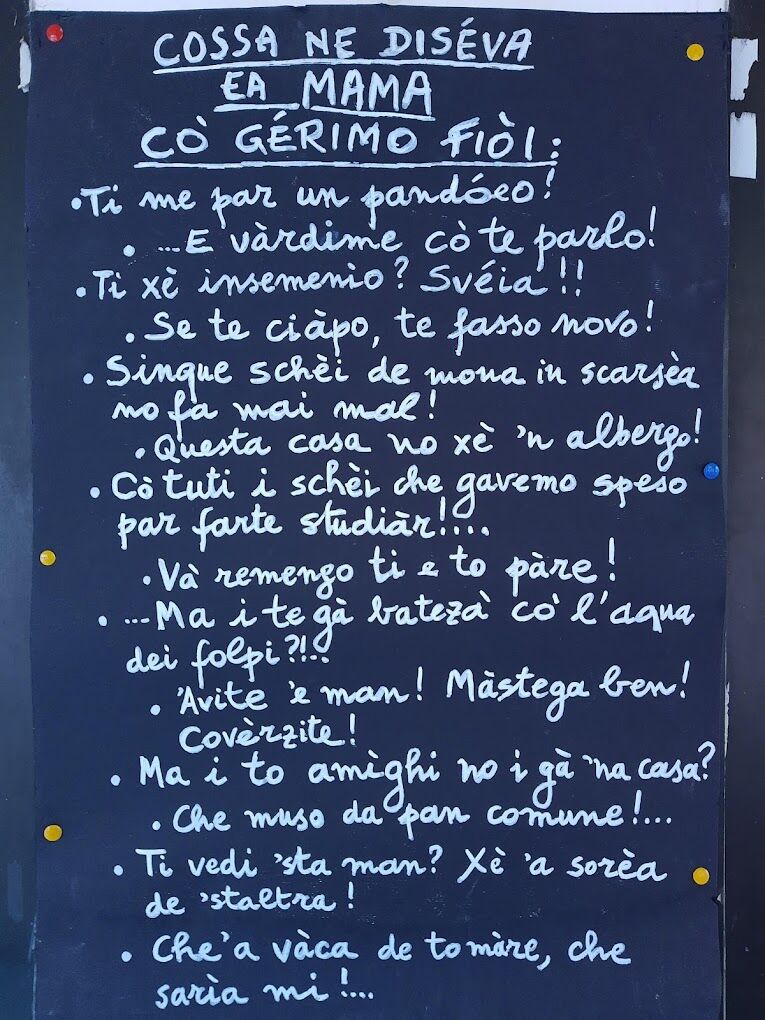 COSSA NE DISÉVA
EA MAMA
CÒ GÉRIMO FIÒI:
•Ti me par un pandóeo!
• ...E vàrdime cò te parlo!
•Ti xè insemenìo? Svéia!!
•Se te ciàpo, te fasso novo!
•Sinque schèi de mona in scarsèa
no fa mai mal!
•Questa casa no xè 'n albergo!
•Cò tuti i schèi che gavemo speso
par farte studiàr!....
•Và remengo ti e to pàre!
•...Ma i te gà batezà cò l'aqua
dei folpi?!...
•'Avite 'e man! Màstega ben!
Covèrzite!
•Ma i to amìghi no i gà 'na casa?
•Che muso da pan comune!...
•Ti vedi 'sta man? Xè 'a sorèa
de 'staltra!
•Che 'a vàca de to màre, che
sarìa mi!...